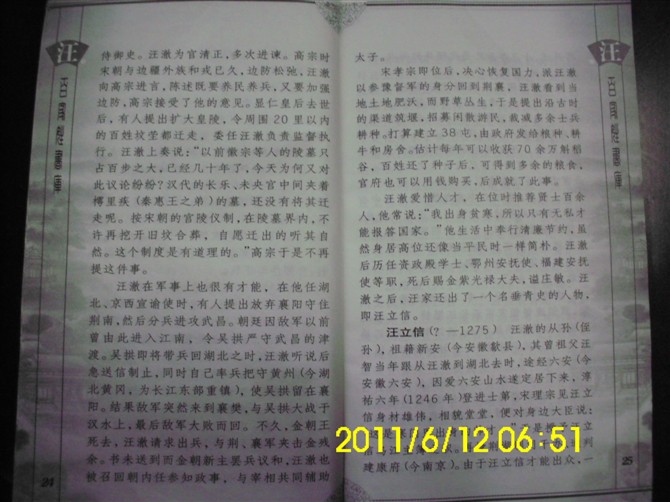 汪
侍御史。汪澈为官清正，多次进谏。高宗时
宋朝与边疆外族和戎已久，边防松弛，汪澈
向高宗进言，陈述既要养民养兵，又要加强
边防，高宗接受了他的意见。显仁皇后去世
后，有人提出扩大皇陵，令周围20里以内
的百姓坟茔都迁走，委任汪澈负责监督执
行。汪澈上奏说：“以前徽宗等人的陵墓只
占百步之大，已经几十年了，今天为何又对
此议论纷纷？汉代的长乐、未央宫中间夹着
樗里疾（秦惠王之弟）的墓，还没有将其迁
走呢。按宋朝的宫陵仪制，在陵墓界内，不
许再挖开旧坟合葬，自愿迁出的听其自
然。这个制度是有道理的。”高宗于是不再
提这件事。
汪澈在军事上也很有才能，在他任湖
北、京西宣谕使时，有人提出放弃襄阳守住
荆南，然后分兵进攻武昌。朝廷因敌军以前
曾由此进入江南，令吴拱严守武昌的津
渡。吴拱即将带兵回湖北之时，汪澈听说后
急送信制止，同时自己率兵把守黄州（今湖
北黄冈，为长江东部重镇），使吴拱留在襄
阳。结果敌军突然来到襄樊，与吴拱大战于
汉水上，最后敌军大败而回。不久，金朝王
死去，汪澈请求出兵，与荆、襄军夹击金残
余。书未送到而金朝新主罢兵议和，汪澈也
被召回朝内任参知政事，与宰相共同辅助
24
汪
太子。
宋孝宗即位后，决心恢复国力，派汪澈
以参豫督军的身分回到荆襄，汪澈看到当
地土地肥沃，而野草丛生，于是提出沿古时
的渠道筑堰，招募闲散游民，裁减多余士兵
耕种。打算建立38屯，由政府发给粮种、耕
牛和房舍。估计每年可以收获70余万斛稻
谷，百姓还了种子后，可得到多余的粮食，
官府也可以用钱购买，后成就了此事。
汪澈爱惜人才，在位时推荐贤士百余
人，他常说：“我出身贫寒，所以只有无私才
能报答国家。”他生活中奉行清廉节约，虽
然身居高位还像当平民时一样简朴。汪澈
后历任资政殿学士、鄂州安抚使、福建安抚
使等职，死后赐金紫光禄大夫，谥庄敏。汪
澈之后，汪家还出了一个名垂青史的人物，
即汪立信。
汪立信（？—1275） 汪澈的从孙（侄
孙），祖籍新安（今安徽歙县），其曾祖父汪
智当年跟从汪澈到湖北去时，途经六安（今
安徽六安），因爱六安山水遂定居下来，淳
祐六年（1246年）登进士第，宋理宗见汪立
信身材雄伟，相貌堂堂，便对身边大臣说：
列
建康府（今南京）。由于汪立信才能出众，一
25
2011/6/12 06:51